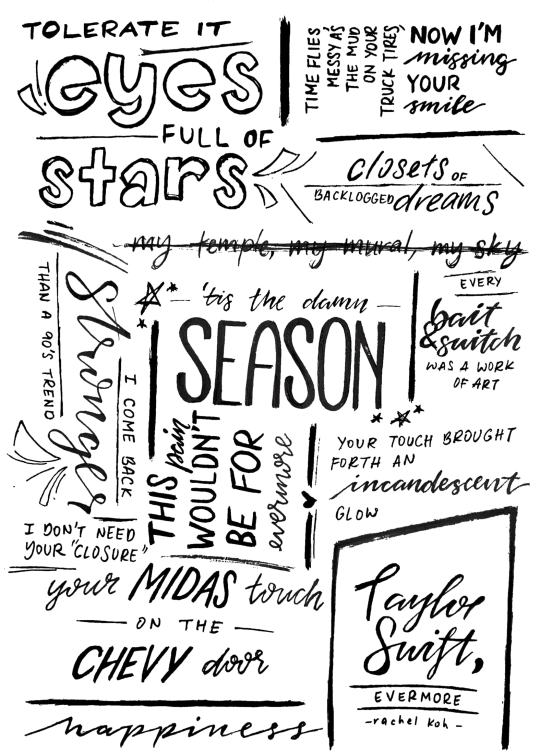 TOLERATE IT
eyes
FULL OF
stars
TIME FLIES,
MESSY AS
THE MUD
ON YOUR
TRUCK TIRES,
NOW I'M
missing
YOUR
smile
closets OF
BACKLOGGED dreams
my temple, my mural, my sky
THAN A 90'S TREND
stronger
I COME BACK
'tis the damn
SEASON
EVERY
bait
& switch
WAS A WORK
OF ART
THIS pain
WOULDN'T
BE FOR
evermore
YOUR TOUCH BROUGHT
FORTH AN
incandescent
GLOW
I DON'T NEED
YOUR "CLOSURE"
your MIDAS touch
ON THE
CHEVY door
happiness
Taylor
Swift,
EVERMORE
-rachel koh-